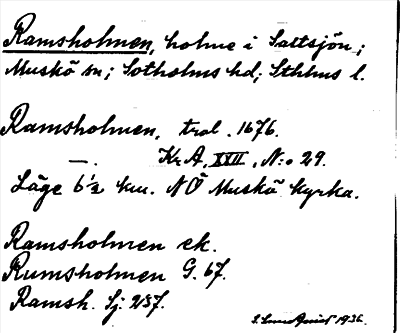 Ramsholmen, holme i Saltsjön;
Muskö sn; Sotholms hd; Sthlms l.
Ramsholmen, trol. 1676.
—. Kr. A. XVII. N:o 29.
Läge 6½ km. NÖ Muskö kyrka.
Ramsholmen ek.
Rumsholmen G. 67.
Ramsh. Sj. 237.
1936.